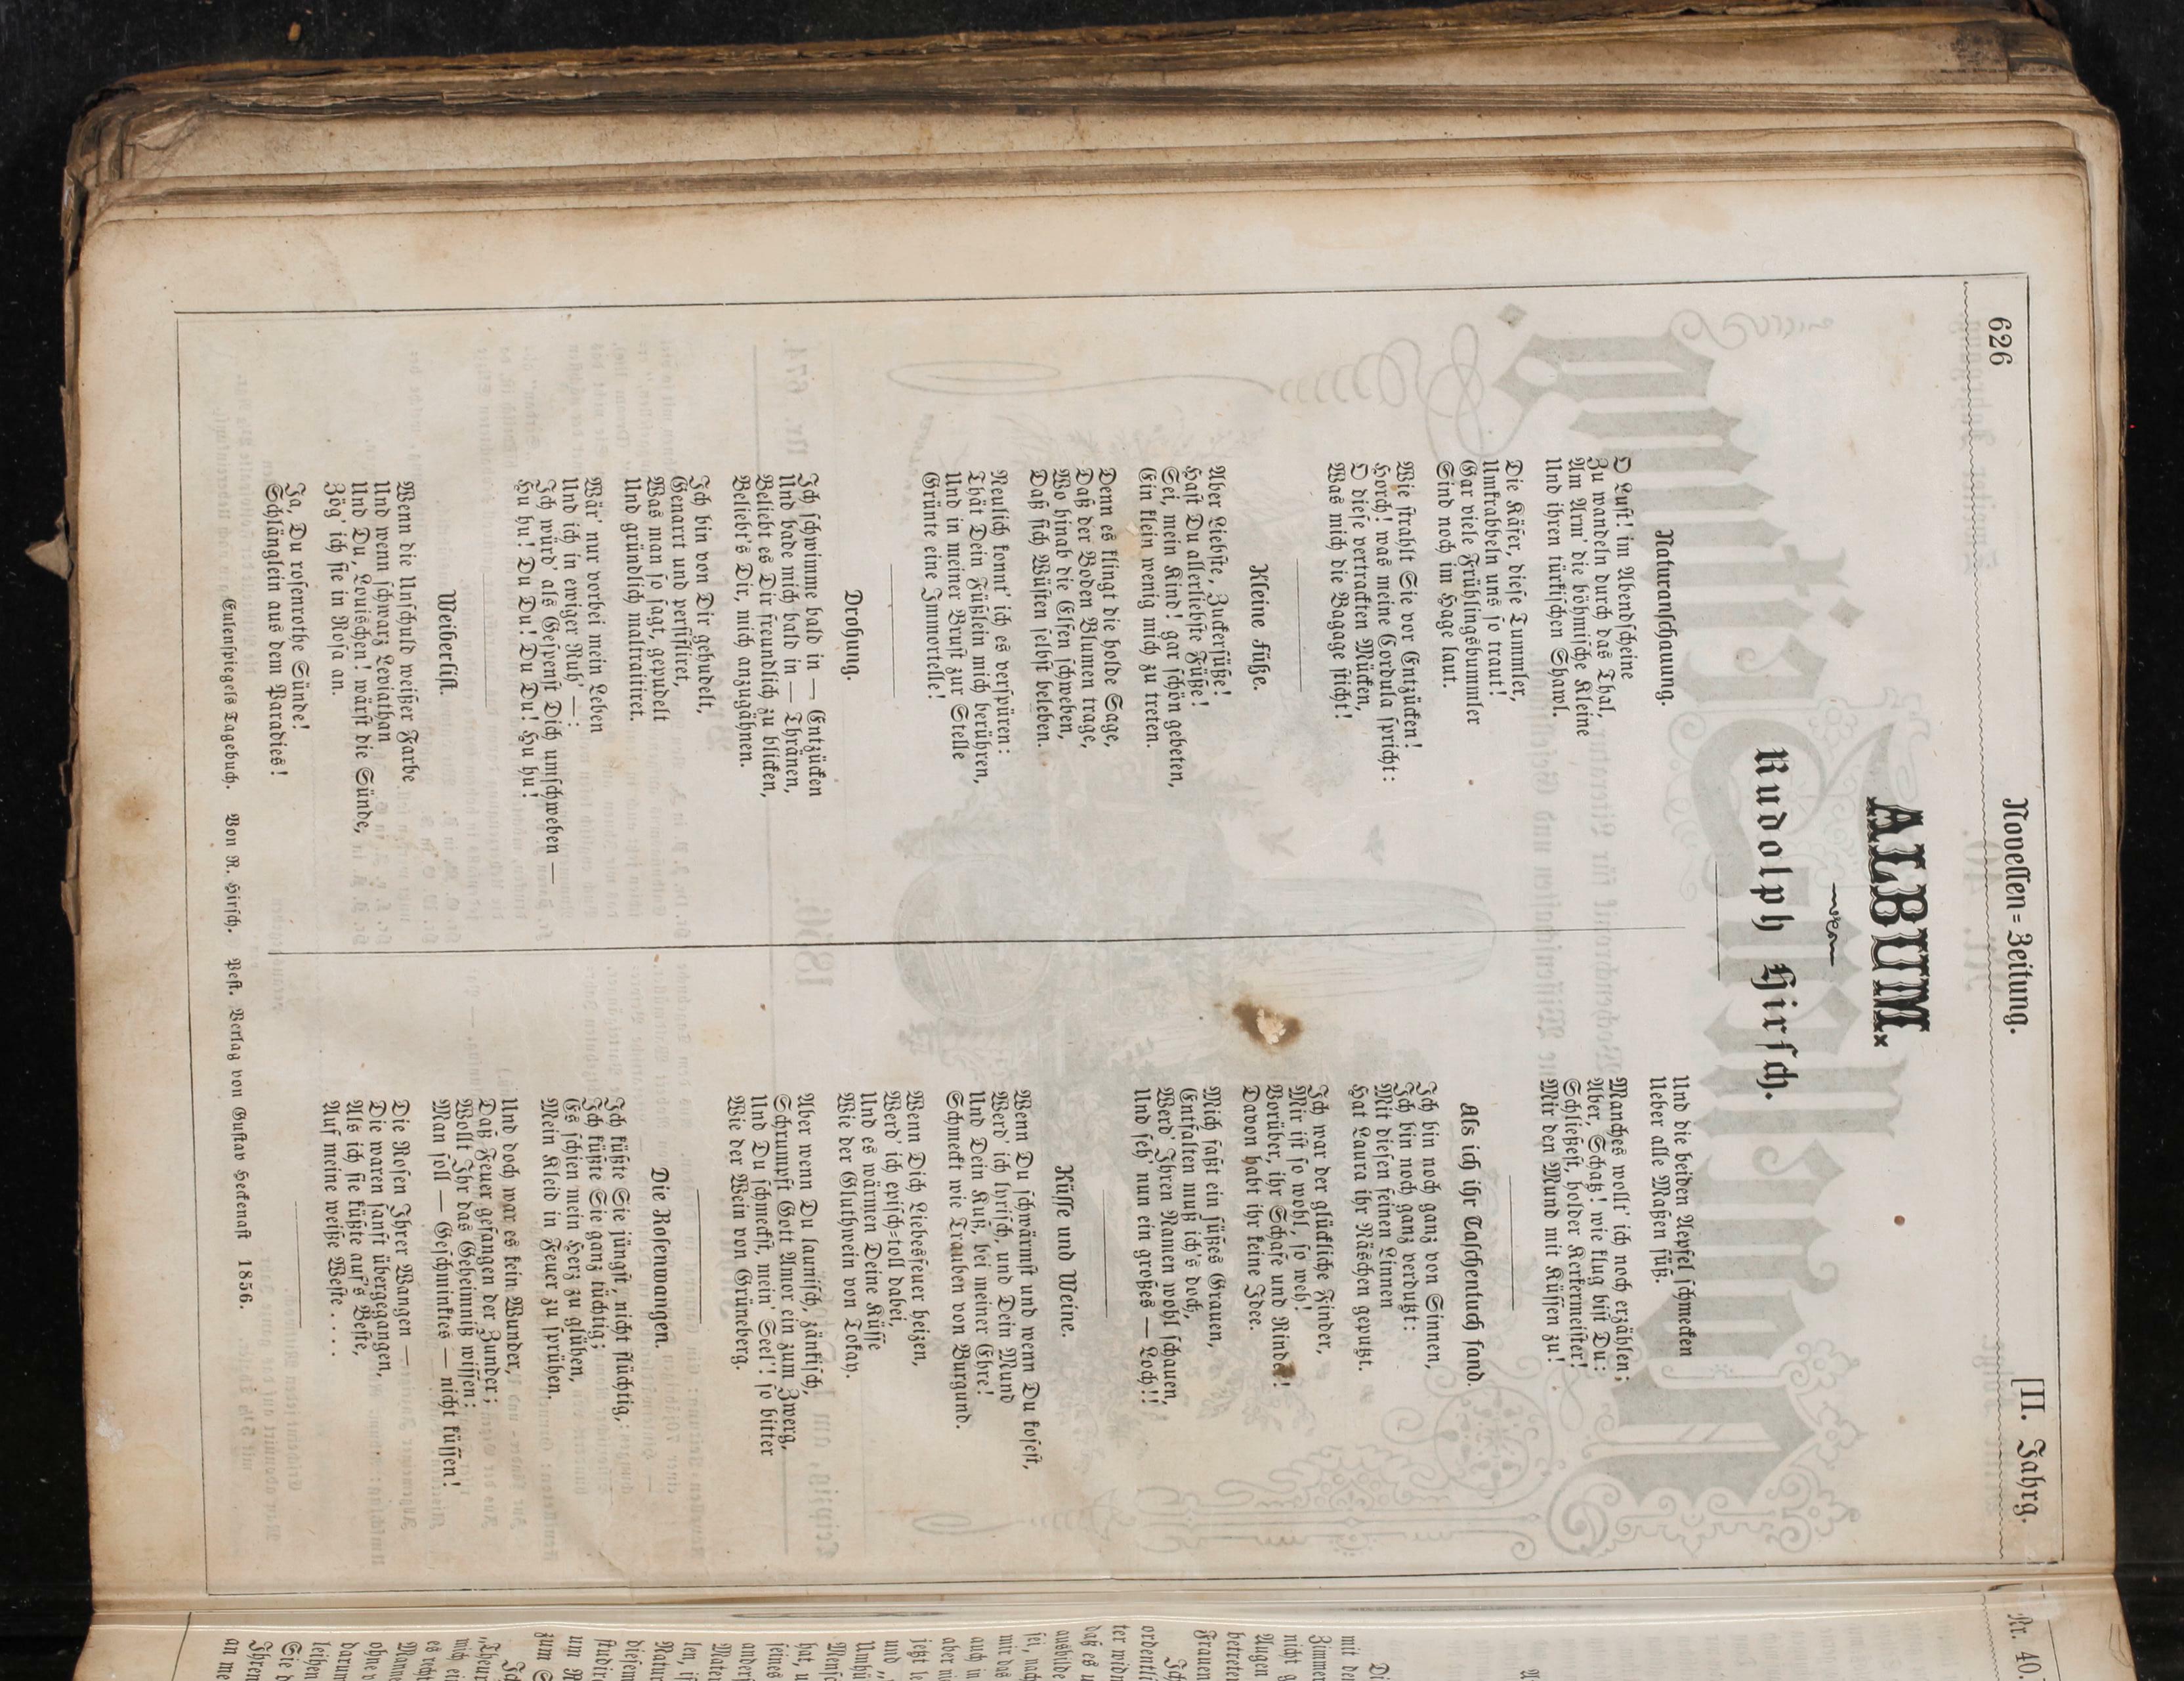 626
Novellen=Zeitung.
[II. Jahrg.
ALBUM.
Rudolph Hirsch.
Naturanschauung.
O Lust! im Abendscheine
Zu wandeln durch das Thal,
Am Arm' die böhmische Kleine
Und ihren türkischen Shawl.
Die Käfer, diese Tummler,
Umkrabbeln uns so traut!
Gar viele Frühlingsbummler
Sind noch im Hage laut.
Wie strahlt Sie vor Entzücken!
Horch! was meine Cordula spricht:
O diese vertrackten Mücken,
Was mich die Bagage sticht!
Kleine Füße.
Aber Liebste, Zuckersüße!
Hast Du allerliebste Füße!
Sei, mein Kind! gar schön gebeten,
Ein klein wenig mich zu treten.
Denn es klingt die holde Sage,
Daß der Boden Blumen trage,
Wo hinab die Elfen schweben,
Daß sich Wüsten selbst beleben.
Neulich konnt' ich es verspüren:
Thät Dein Füßlein mich berühren,
Und in meiner Brust zur Stelle
Grünte eine Immortelle!
Drohung.
Ich schwimme bald in — Entzücken
Und bade mich bald in — Thränen,
Beliebt es Dir freundlich zu blicken,
Beliebt's Dir, mich anzugähnen.
Ich bin von Dir gehudelt,
Genarrt und persifliret,
Was man so sagt, gepudelt
Und gründlich maltraitiret.
Wär' nur vorbei mein Leben
Und ich in ewiger Ruh' —:
Ich würd' als Gespenst Dich umschweben —
Hu hu! Du Du! Du Du! Hu hu!
Weiberlist.
Wenn die Unschuld weißer Farbe
Und wenn schwarz Leviathan
Und Du, Louischen! wärst die Sünde,
Zög' ich sie in Rosa an.
Ja, Du rosenrothe Sünde!
Schlänglein aus dem Paradies!
Und die beiden Aepfel schmecken
Ueber alle Maßen süß.
Manches wollt' ich noch erzählen;
Aber, Schatz! wie klug bist Du:
Schließest, holder Kerkermeister!
Mir den Mund mit Küssen zu!
Als ich ihr Taschentuch fand.
Ich bin noch ganz von Sinnen,
Ich bin noch ganz verdutzt:
Mit diesen feinen Linnen
Hat Laura ihr Näschen geputzt.
Ich war der glückliche Finder,
Mir ist so wohl, so weh!
Vorüber, ihr Schafe und Rinder!
Davon habt ihr keine Idee.
Mich faßt ein süßes Grauen,
Entfalten muß ich's doch,
Werd' Ihren Namen wohl schauen,
Und seh' nun ein großes — Loch!!
Küsse und Weine.
Wenn Du schwärmst und wenn Du kosest,
Werd' ich lyrisch, und Dein Mund
Und Dein Kuß, bei meiner Ehre!
Schmeckt wie Trauben von Burgund.
Wenn Dich Liebesfeuer heizen,
Werd' ich episch=toll dabei,
Und es wärmen Deine Küsse
Wie der Gluthwein von Tokay.
Aber wenn Du launisch, zänkisch,
Schrumpft Gott Amor ein zum Zwerg,
Und Du schmeckst, mein' Seel'! so bitter
Wie der Wein von Grüneberg.
Die Rosenwangen.
Ich küßte Sie jüngst, nicht flüchtig,
Ich küßte Sie ganz tüchtig;
Es schien mein Herz zu glühen,
Mein Kleid in Feuer zu sprühen.
Und doch war es kein Wunder,
Daß Feuer gefangen der Zunder;
Wollt Ihr das Geheimniß wissen:
Man soll — Geschminktes — nicht küssen!
Die Rosen Ihrer Wangen —
Die waren sanft übergegangen,
Als ich sie küßte auf's Beste,
Auf meine weiße Weste. . . .
Eulenspiegels Tagebuch. Von R. Hirsch. Pest. Verlag von Gustav Heckenast 1856.
Nr. 40.